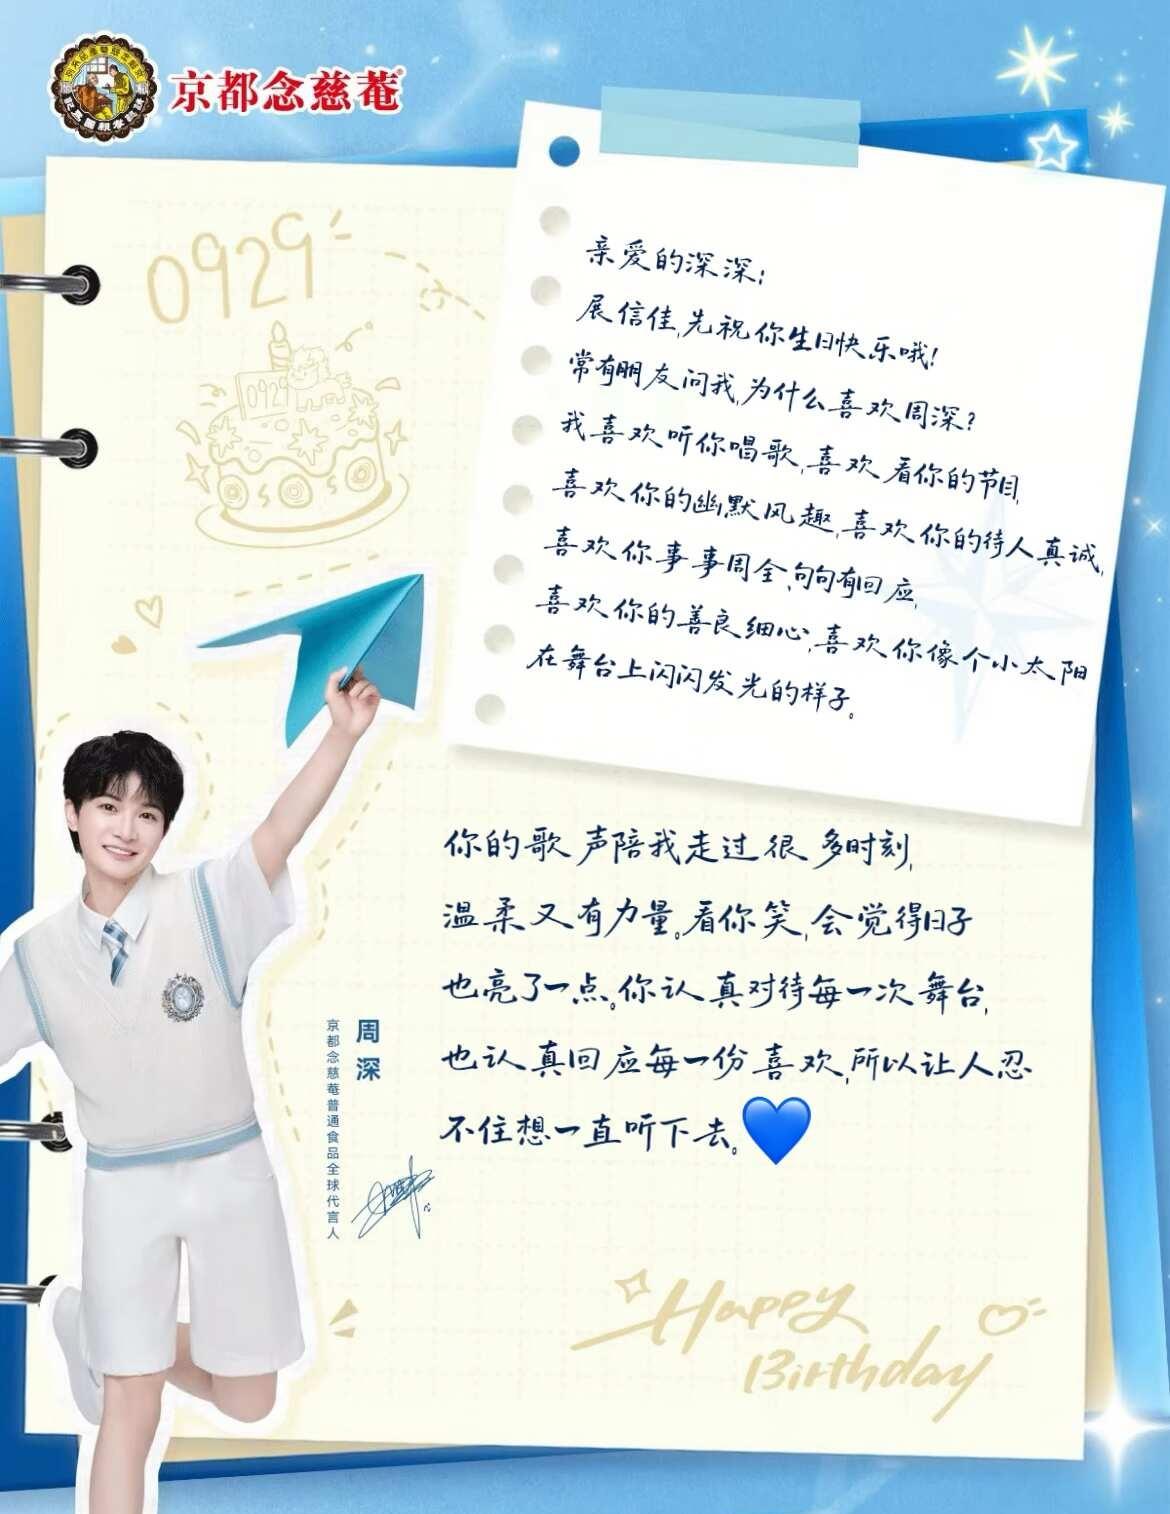 京都念慈菴
0929
0929
亲爱的深深：
展信佳，先祝你生日快乐哦！
常有朋友问我，为什么喜欢周深？
我喜欢听你唱歌，喜欢看你的节目，
喜欢你的幽默风趣，喜欢你的待人真诚，
喜欢你事事周全、句句有回应，
喜欢你的善良细心，喜欢你像个小太阳
在舞台上闪闪发光的样子。
你的歌声陪我走过很多时刻，
温柔又有力量。看你笑，会觉得日子
也亮了一点。你认真对待每一次舞台，
也认真回应每一份喜欢，所以让人忍
不住想一直听下去。💙
周深
京都念慈菴普通食品全球代言人
Happy
Birthday